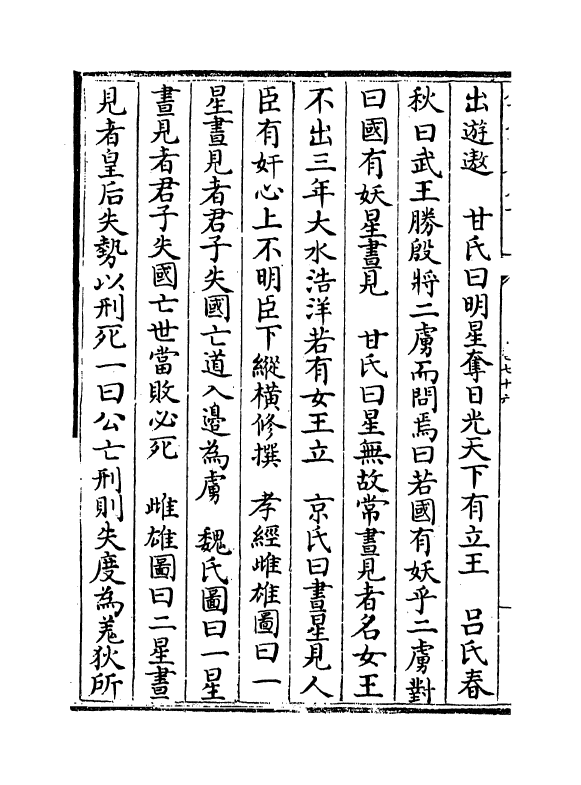 出遊遨　甘氏曰明星奪日光天下有立王　吕氏春
秋曰武王勝殷將二虜而問焉曰若國有妖乎二虜對
曰國有妖星晝見　甘氏曰星無故常晝見者名女王
不出三年大水浩洋若有女王立　京氏曰晝星見人
臣有奸心上不明臣下縱橫修撰　孝經雌雄圖曰一
星晝見者君子失國亡道入邊為虜　魏氏圖曰一星
晝見者君子失國亡世當敗必死　雌雄圖曰二星晝
見者皇后失勢以刑死一曰公亡刑則失度為羌狄所